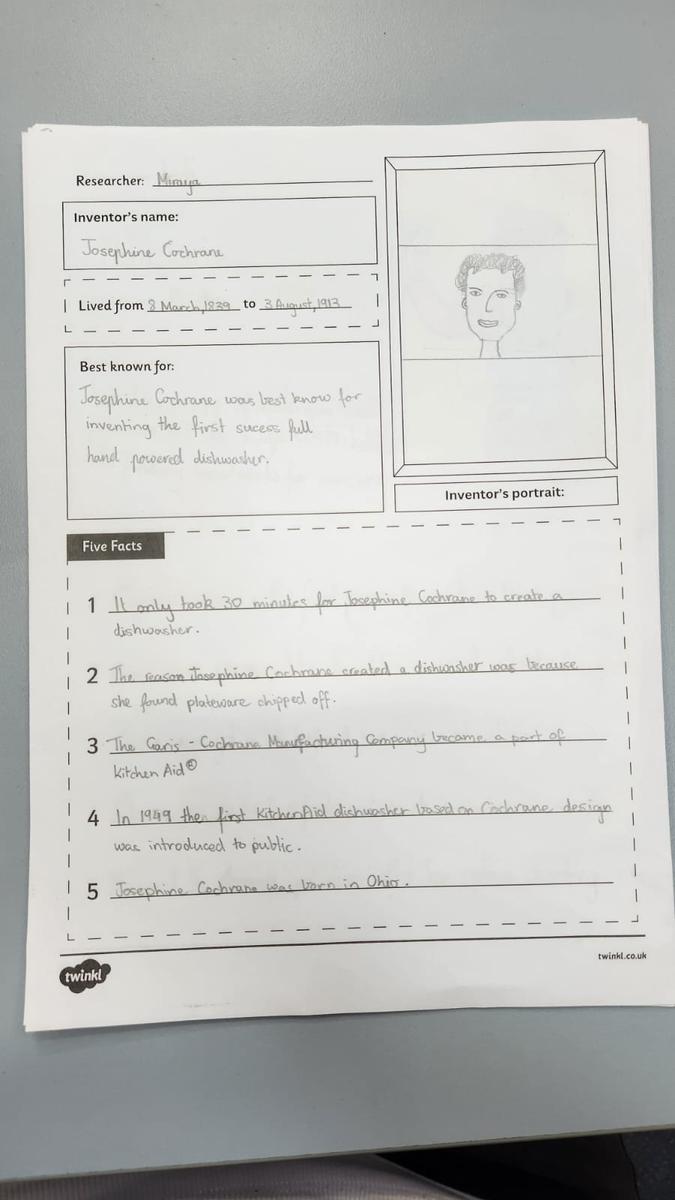 Researcher: Miraya
Inventor's name:
Josephine Cochrane
Lived from 8 March,1839 to 3 August,1913
Best known for:
Josephine Cochrane was best know for
inventing the first sucess full
hand powered dishwasher.
Inventor's portrait:
Five Facts
1 It only took 30 minutes for Josephine Cochrane to create a
dishwasher.
2 The reason Josephine Cochrane created a dishwasher was because
she found plateware chipped off.
3 The Garis - Cochrane Manufacturing Company became a part of
Kitchen Aid®
4 In 1949 the first KitchenAid dishwasher based on Cochrane design
was introduced to public.
5 Josephine Cochrane was born in Ohio.
twinkl
twinkl.co.uk